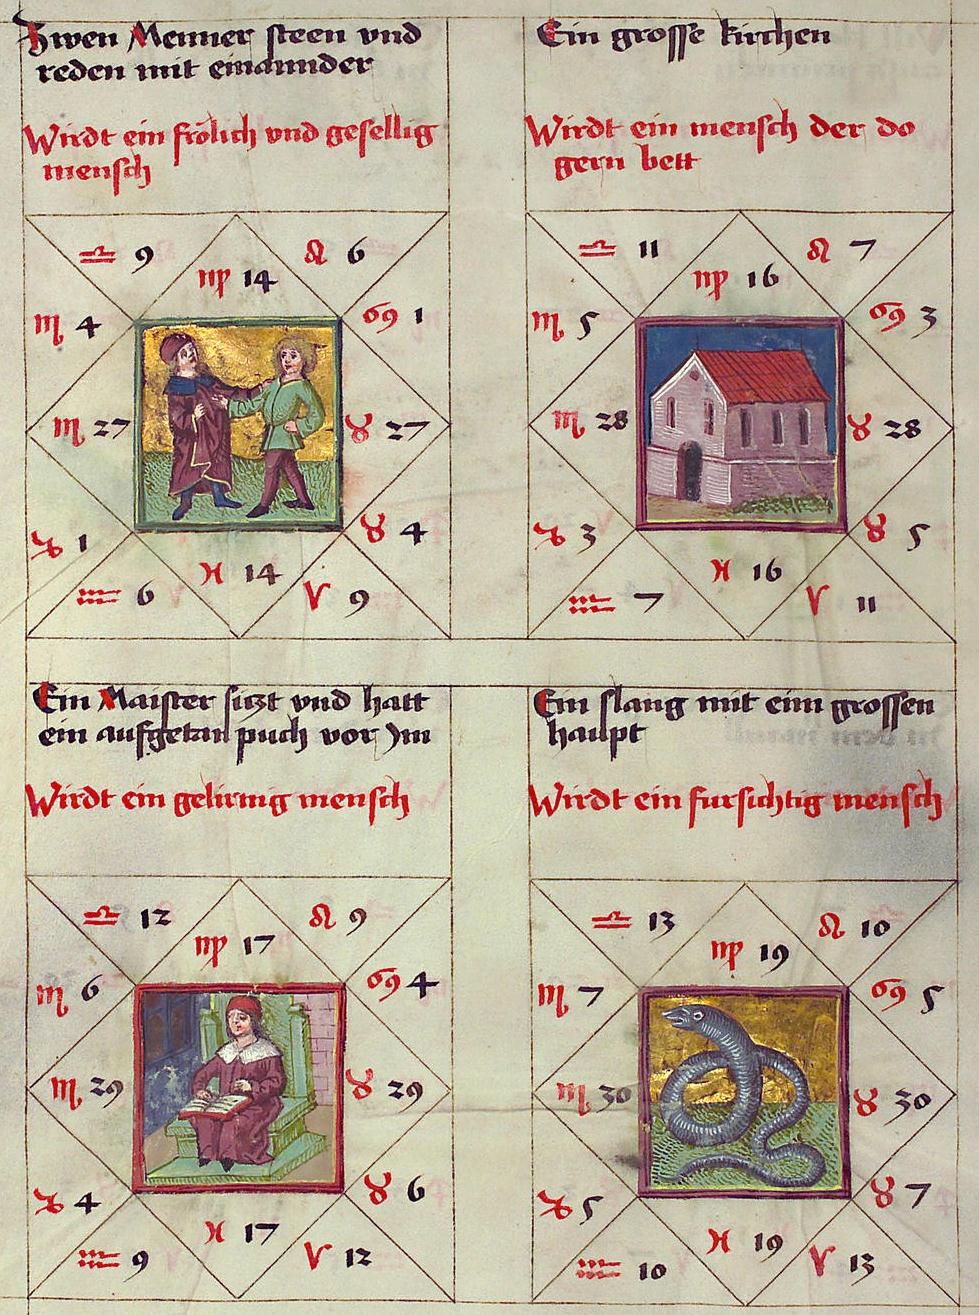 Zwen Menner steen vnd
reden mit einannder
Wirdt ein frölich vnd gesellig
mensch
♎ 9
♍ 14
♌ 6
♏ 4
♋ 1
♏ 27
♉ 27
♑ 1
♉ 4
♒ 6
♓ 14
♈ 9
Ein grosse kirchen
Wirdt ein mensch der do
gern bett
♎ 11
♍ 16
♌ 7
♏ 5
♋ 3
♏ 28
♉ 28
♑ 3
♉ 5
♒ 7
♓ 16
♈ 11
Ein Maister sitzt vnd hatt
ein aufgetan puch vor Im
Wirdt ein gelirnig mensch
♎ 12
♍ 17
♌ 9
♏ 6
♋ 4
♏ 29
♉ 29
♑ 4
♉ 6
♒ 9
♓ 17
♈ 12
Ein slang mit eim grossen
haupt
Wirdt ein fursichtig mensch
♎ 13
♍ 19
♌ 10
♏ 7
♋ 5
♏ 30
♉ 30
♑ 5
♉ 7
♒ 10
♓ 19
♈ 13